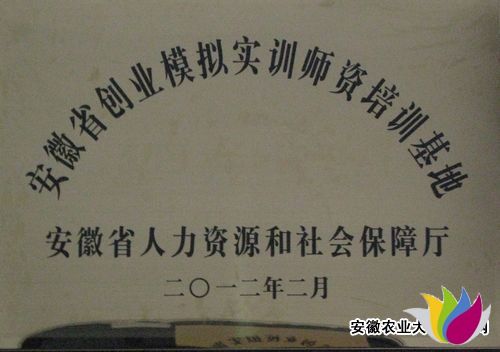 安徽省创业模拟实训师资培训基地
安徽省人力资源和社会保障厅
二〇一二年二月
安徽农业大
网